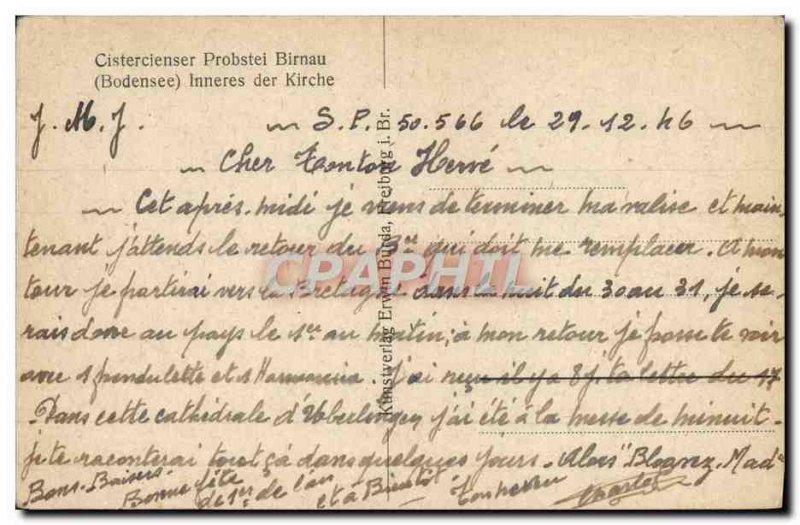 Cistercienser Probstei Birnau
(Bodensee) Inneres der Kirche
J. M. J.
S.P. 50.566 le 29.12.46
Cher Tonton Hervé
Cet après-midi je viens de terminer ma valise et main,
tenant j'attends le retour du 3me qui doit me remplacer. A mon
tour je partirai vers la Bretagne dans la nuit du 30 au 31, je se,
rais donc au pays le 1er au matin; à mon retour je passe te voir
avec 1 pendulette et 1 Harmonica. J'ai reçu il y a 8 j. ta lettre du 17
Dans cette cathédrale d'Uberlingen j'ai été à la messe de minuit.
je te raconterai tout ça dans quelques jours.
Bons-Baisers. Bonne fête
de 1er de l'an
et à Bientôt
Kunstverlag Erwin Burda, Freiburg i. Br.
CPAPHIL